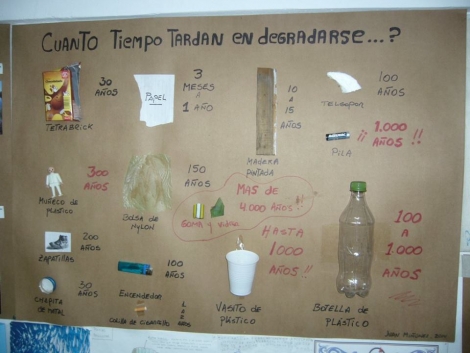 CUANTO TIEMPO TARDAN EN DEGRADARSE...?
30 AÑOS
TETRABRICK
PAPEL
3 MESES A 1 AÑO
10 A 15 AÑOS
MADERA PINTADA
100 AÑOS
TELGOPOR
PILA
¡¡ 1.000 AÑOS !!
300 AÑOS
MUÑECO DE PLÁSTICO
150 AÑOS
BOLSA DE NYLON
MAS DE 4.000 AÑOS !!
GOMA Y VIDRIO
200 AÑOS
ZAPATILLAS
100 AÑOS
ENCENDEDOR
30 AÑOS
CHAPITA DE METAL
1 A 2 AÑOS
COLILLA DE CIGARRILLO
HASTA 1000 AÑOS !!
VASITO DE PLÁSTICO
100 A 1.000 AÑOS
BOTELLA DE PLÁSTICO